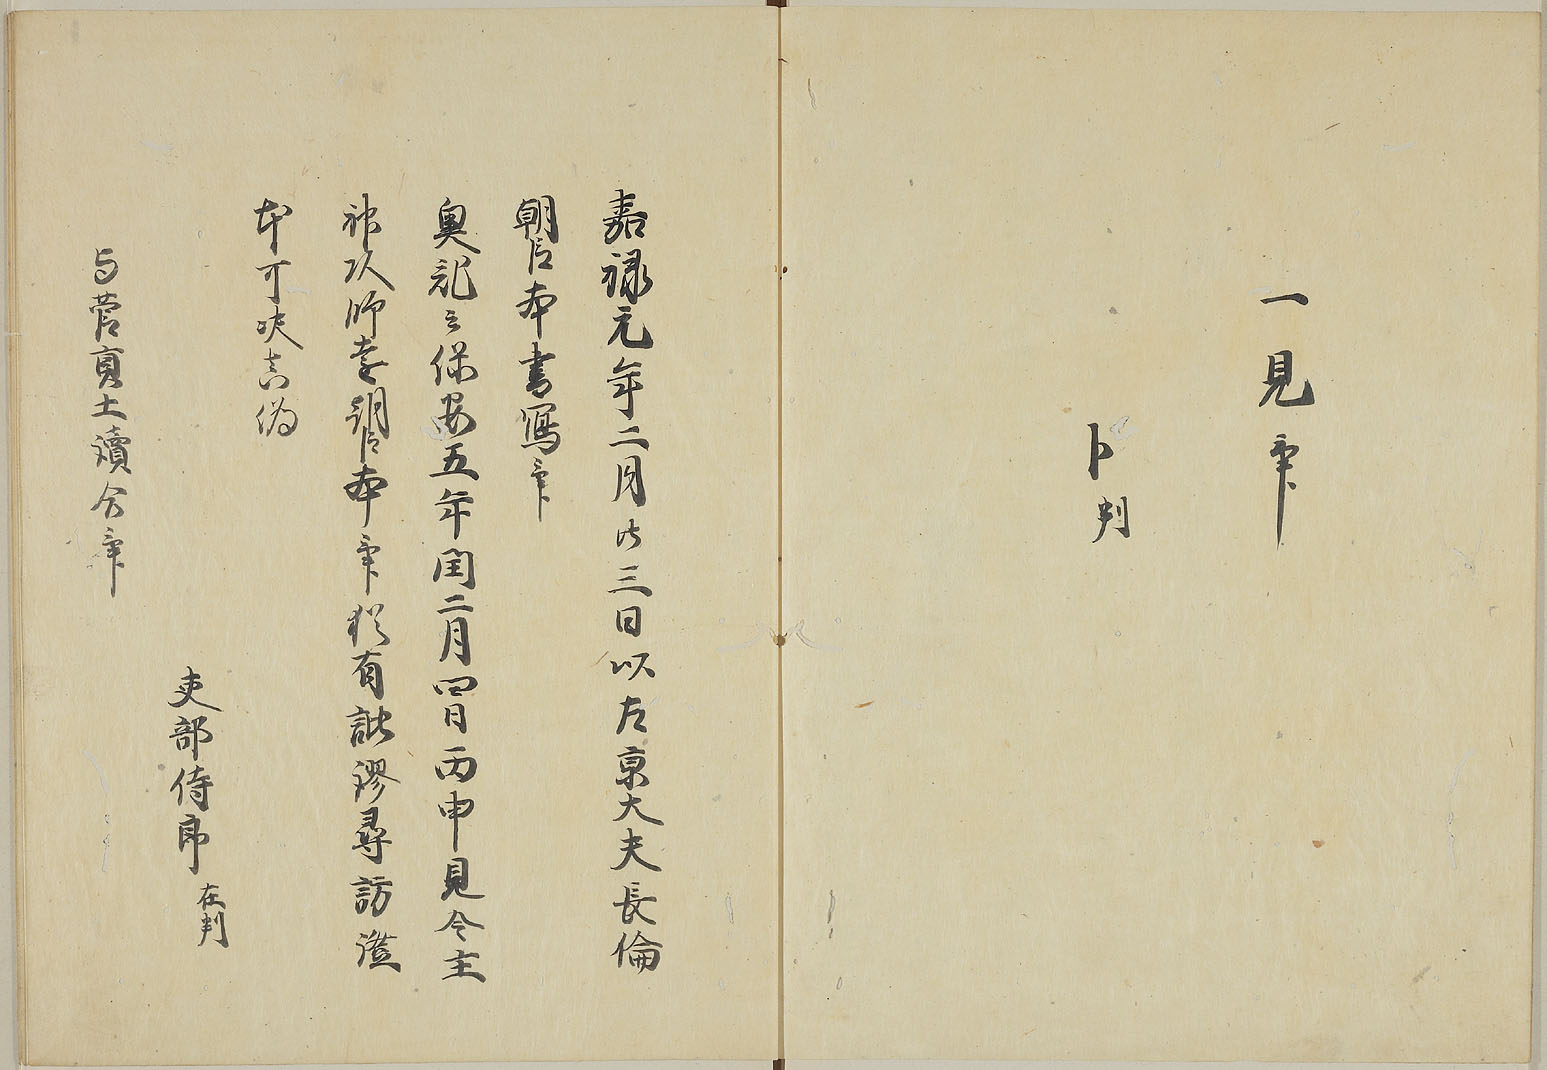 一見畢
卜判
嘉禄元年二月廿三日以左京大夫長倫
朝臣本書写畢
奥記云保安五年閏二月四日丙申見合主
師孝朝臣本畢猶有訛謬尋訪證
本可決真偽
吏部侍郎在判
与菅貢士讀合畢